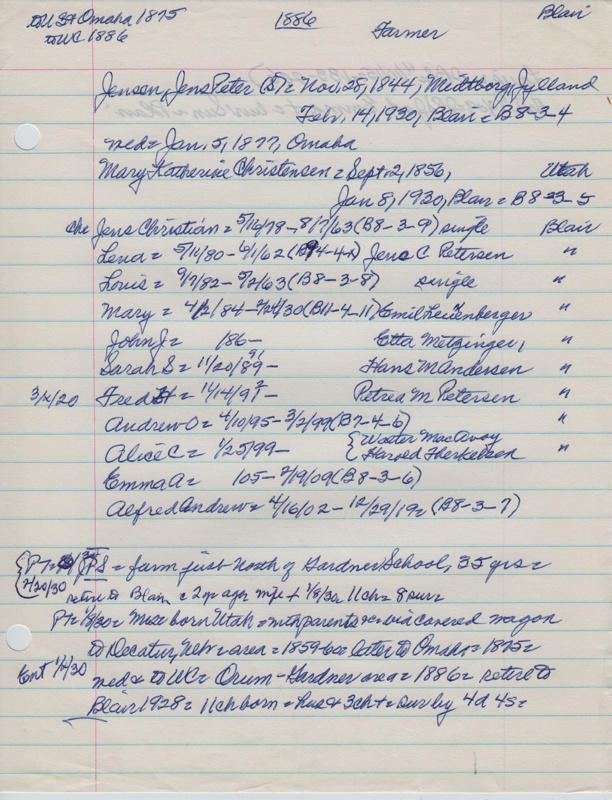 to US & Omaha 1875 1886 Blair
to WC 1886 Farmer
Jensen, Jens Peter (S) = Nov. 28, 1844, Midtborg, Jylland
Febr. 14, 1930, Blair = B8-3-4
med = Jan. 5, 1877, Omaha
Mary Katherine Christensen = Sept. 2, 1856, Utah
Jan 8, 1930, Blair = B8-3-5
che Jens Christian = 5/16/78 - 8/7/63 (B8-3-9) single Blair
Lena = 5/14/80 - 6/1/62 Jens C Petersen "
Louis = 9/7/82 - 5/2/63 (B8-3-8) single "
Mary = 4/2/84 - 2/24/30 (B11-4-11) Emil Leuenberger "
John J = 186- Etta Metzinger, "
Sarah S = 11/20/89 - Hans M Andersen "
3/12/20 Fred = 11/14/9 - Petrea M Petersen "
Andrew O = 4/10/95 - 3/2/99 (B7-4-6) "
Alice C = 1/25/99 - { Walter MacAvoy
Harold Therkelsen "
Emma A = 105 - 2/19/09 (B8-3-6)
Alfred Andrew = 4/16/02 - 12/29/19 = (B8-3-7)
{ PT = JPS = farm just North of Gardner School, 35 yrs =
2/20/30 retire to Blair = 2 yr ago wife + 1/8/30 = 11 ch = 8 surv
PT = 1/8/30 = Mrs = born Utah = with parents = via covered wagon
to Decatur, Nebr = area = 1859-60 = later to Omaha = 1875 =
Ent 1/9/30 med & to WC = Orum-Gardner area = 1886 = retire to
Blair 1928 = 11 ch born = hus & 3 ch + = sur by 4d 4s =